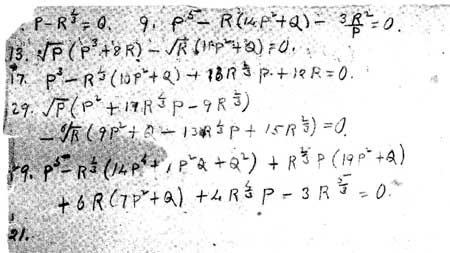 . P - R^{1/3} = 0. 9. P^5 - R(14P^2+Q) - 3R^2/P = 0.
13. √P(P^3+8R) - √R(11P^2+Q) = 0.
17. P^3 - R^{1/3}(10P^2+Q) + 13R^{2/3}P + 12R = 0.
29. √P(P^2 + 17R^{1/3}P - 9R^{2/3})
- √R(9P^2+Q - 13R^{1/3}P + 15R^{2/3}) = 0.
P^5 - R^{1/3}(14P^4 + P^2Q + Q^2) + R^{2/3}P(19P^2+Q)
+ 6R(7P^2+Q) + 4R^{4/3}P - 3R^{5/3} = 0.
21.